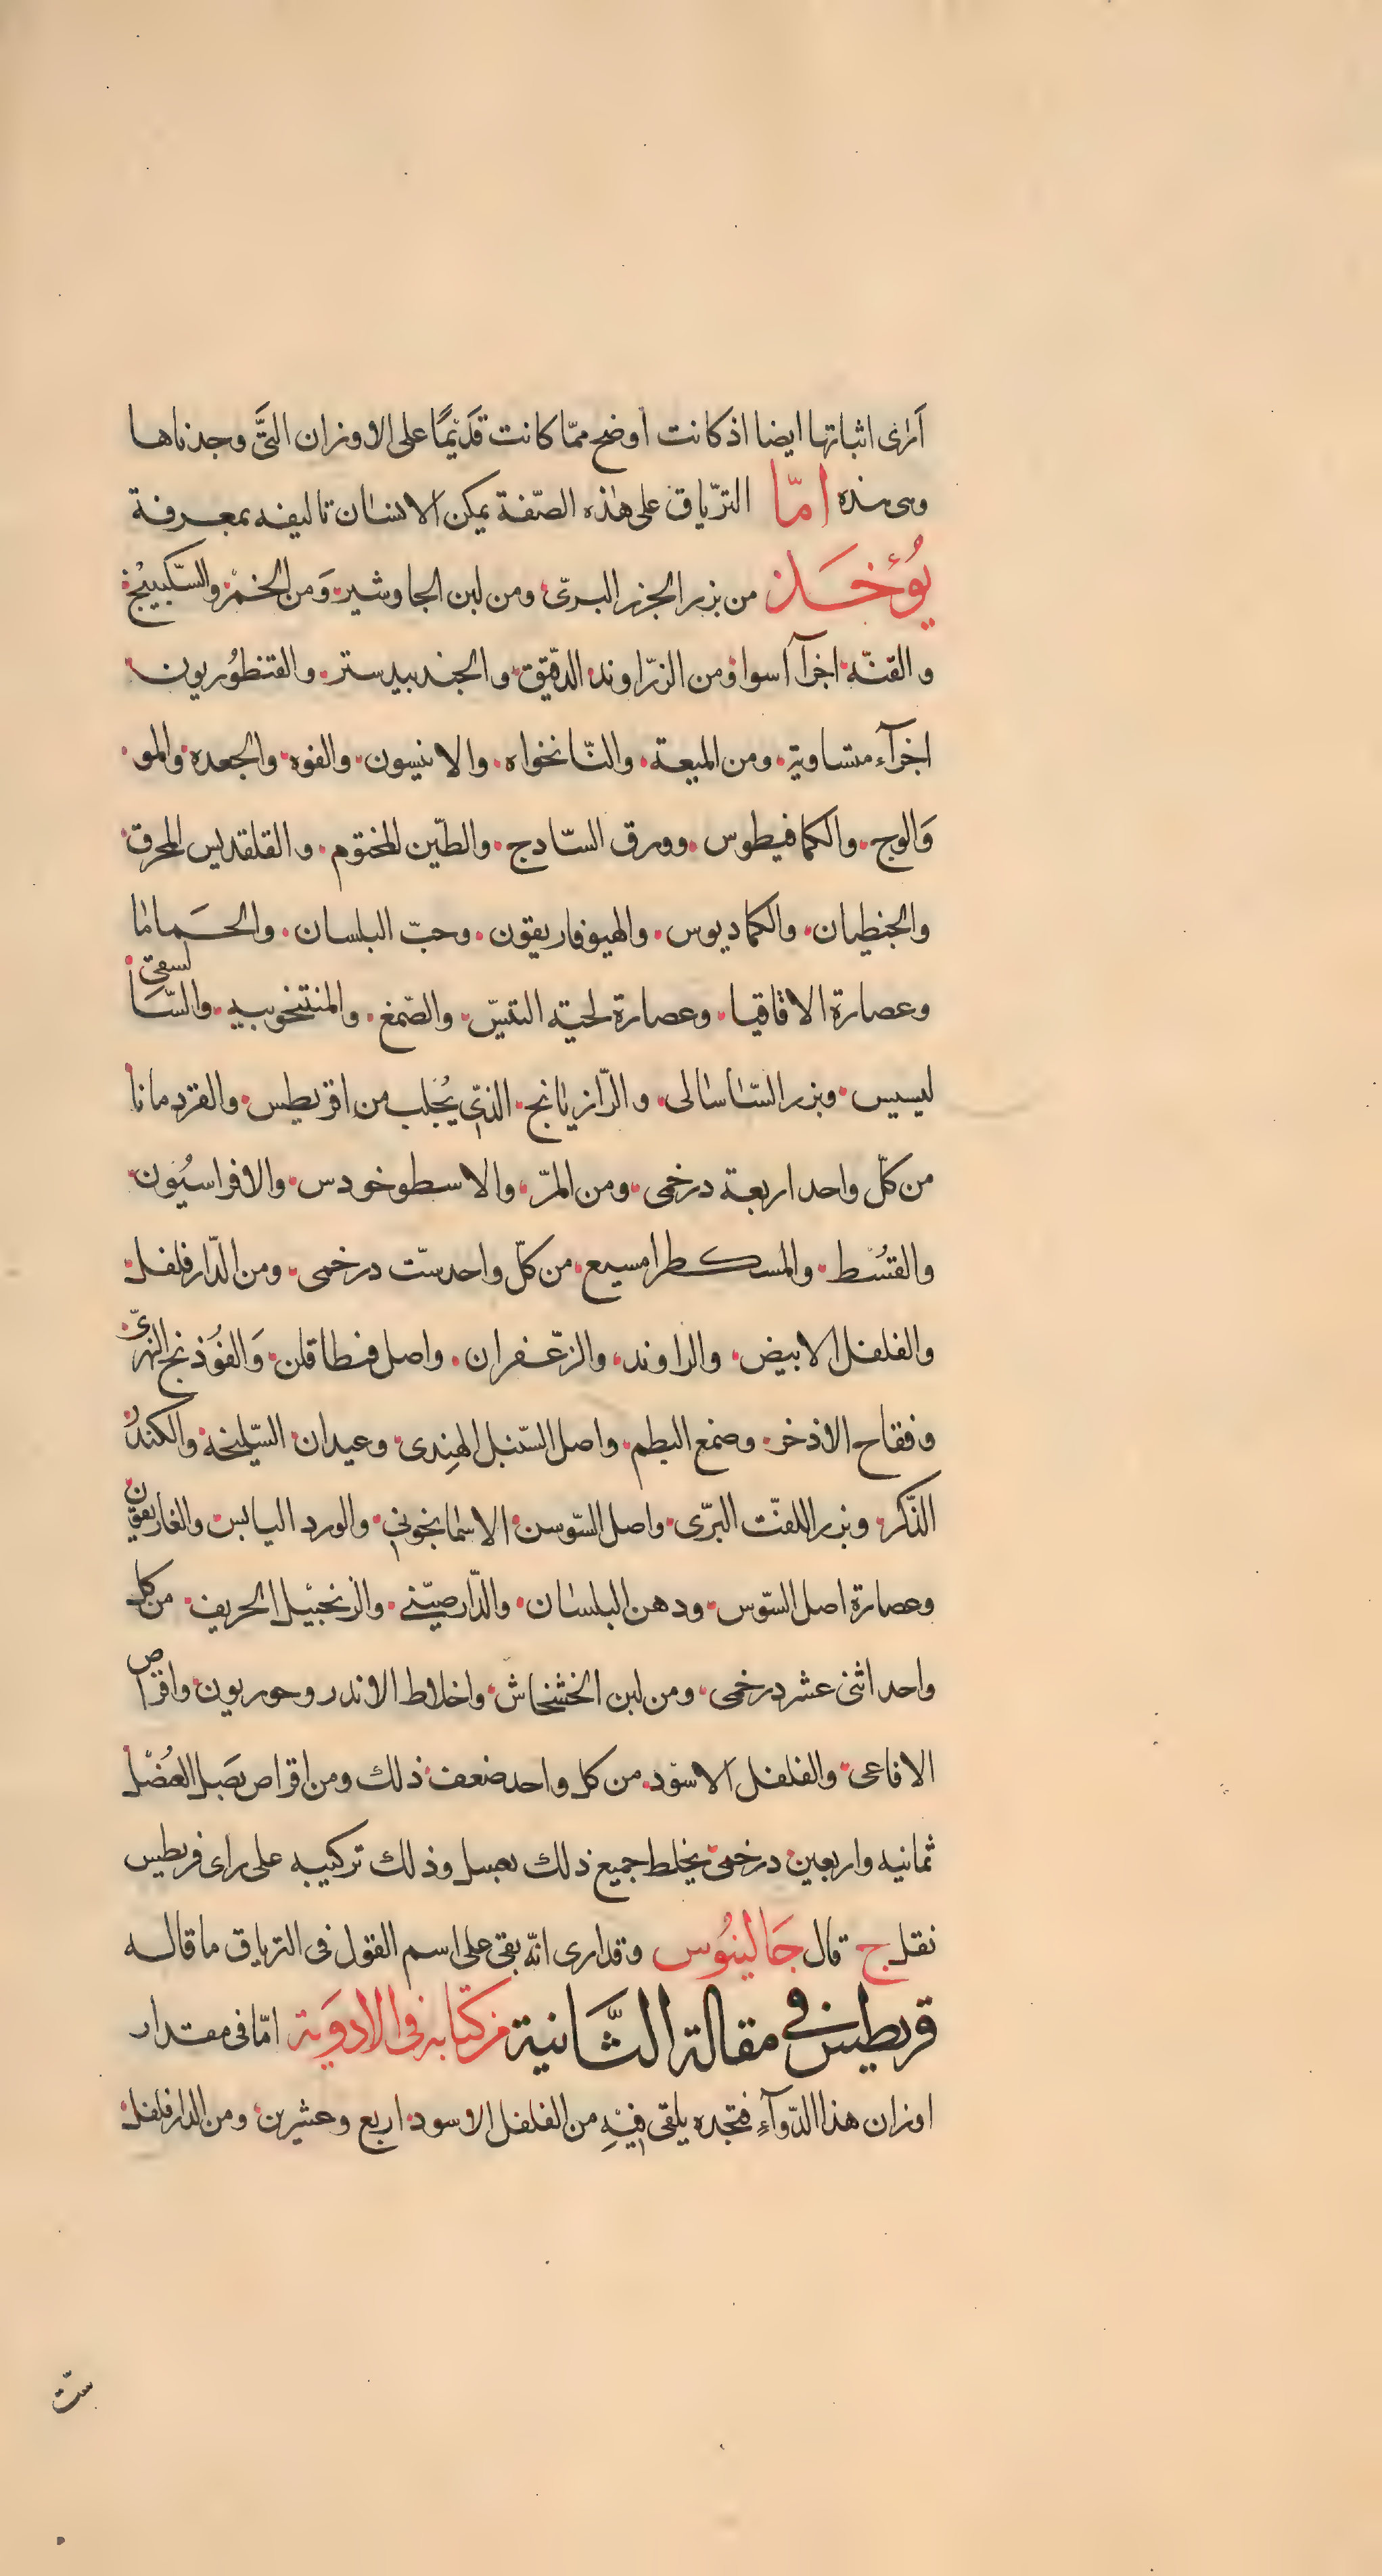 اَرٰى اثباتها ايضا اذ كانت اوضح ممّا كانت قدَيْمًا على الاوزان التىَّ وجدناها
وهى هذه امّا الترّياق على هٰذه الصّفة يمكن الانسٰان تاليفه بمعرفة
يُؤخَذ من بزر الجزر البرىّ ومن لبن الجاوشير وَمن الخمرْ والسّكبينْج
والقنّه اجزآ اسوا ومن الزرّاوند الدقّيق والجندبيدستر والقنطوُريون
اجزآء متساوية ومن الميعة والنّانخواه والانيسون والفوه والجعده والمو
وَالوج والكمافيطوس وورق السّادج والطيّن المختوم والقلقديس المحرق
والجنطيان والكماديوس والهيوفاريقون وحبّ البلسان والحَماما
وعصارة الاقاقيا وعصارة لحية التيسّ والصّمغ والسّا لسفى
ليسيس وبزر السّاسالى والرّازيانج الذىّ يُجلب من اقريطس والقردمانا
من كلّ واحد اربعة درخمى ومن المرّ والاسطوخودس والافراسيُون
والقُسْط والمسكطرامسيع من كلّ واحد ستّ درخمى ومن الدّارفلفل
والفلفل الابيض والراوند والزعّفران واصل فنطاقلن وَالفوُذنج النهرىّ
وفقاح الاذخر وصمغ البطم واصل السّنبل الهِندى وعيدان السيّلخة والكندُر
الذّكر وبزر اللفتّ البرّى واصل السّوسن الاسمانجونى والورد اليابس والغاريقون
وعصارة اصل السّوس ودهن البلسٰان والدّارصينّى والزنجبيْل الحريف من كل
واحد اثنى عشر درخمى ومن لبن الخشخاش واخلاط الاندروحوريون واقراص
الافاعى والفلفل الاسوّد من كل واحد ضعف ذلك ومن اقراص بَصل العُضْل
ثمانيه واربعين درخمى يخلط جميع ذلك بعسل وذلك تركيبه على راى قريطيس
نقل ج قال جَالينوُس وقد ارى انّه بقى على اسم القول فى الترياق ما قاله
قريطيس فى مقالة الثَّانية من كتابه فى الادوَية امّا فى مقدار
اوزان هذا الدّوآءِ فتجده يلقى فيْهِ من الفلفل الاسود اربع وعشرين ومن الدارفلفل
ستّ